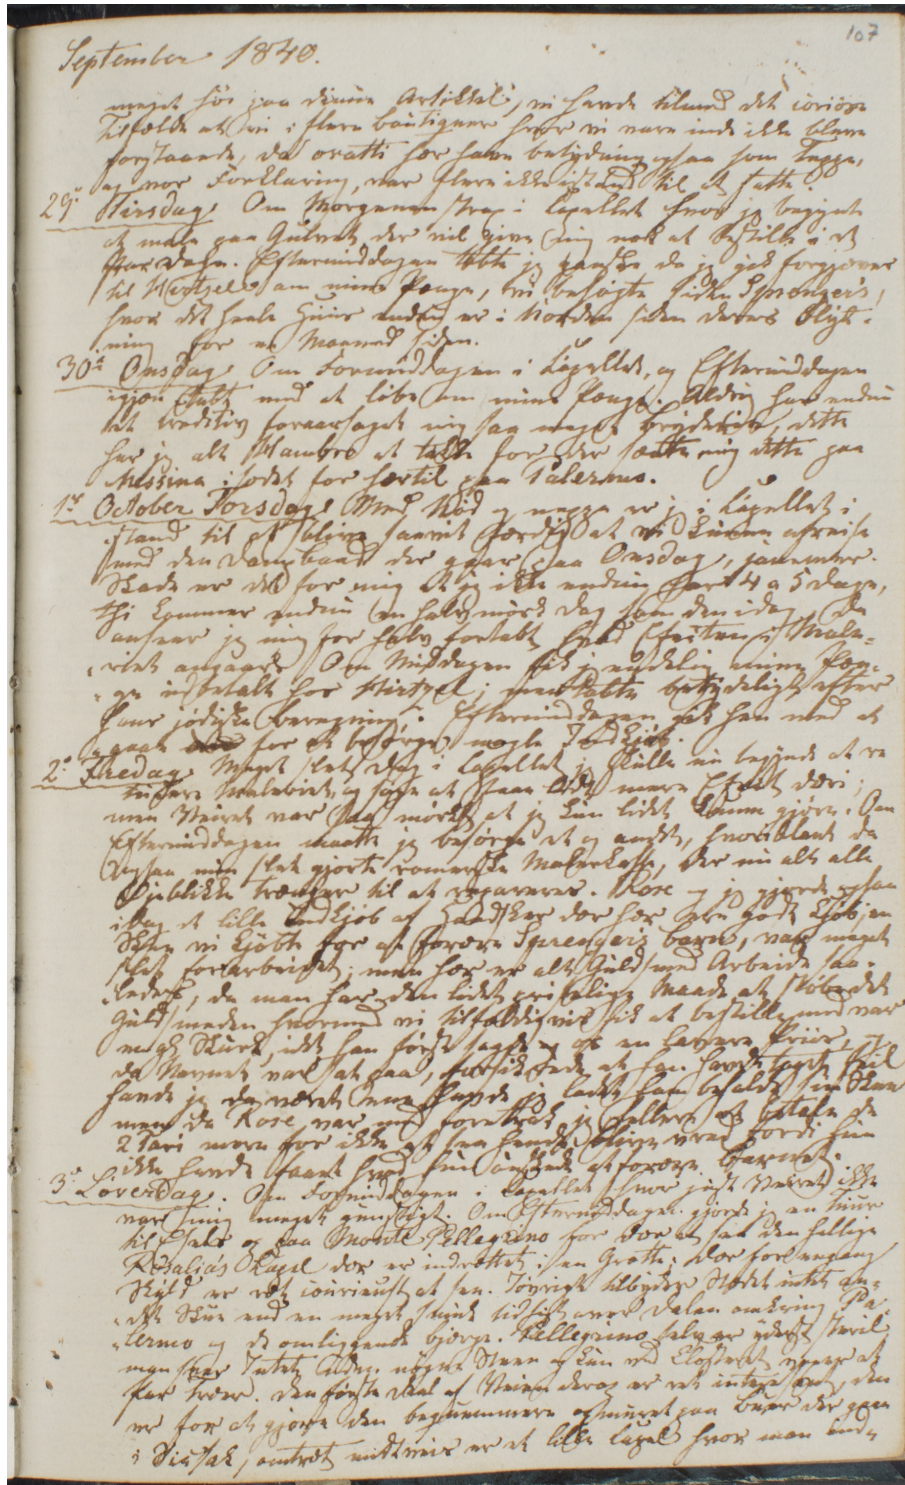 107
September 1840.
meget høi paa denne Artikkel, vi havde tilmed det curiøse
Tilfælde at vi i flere boutiquer hvor vi vare inde ikke bleve
forstaaede, da oratti her have betydning ogsaa som Teppe,
og vor Forklaring, var flere ikke istand til at fatte.
29de Tirsdag. Om Morgenen strax i Capellet hvor jeg begynte
at male paa Gulvet, der vil give mig nok at bestille i et
Par Dage. Eftermiddagen tabte jeg ganske da jeg gik forgjæves
til Hirtzel om mine Penge, vi besøgte siden Sprenger's,
hvor det heele Huus endnu er i Uorden siden deres Flyt-
ning for en Maaned siden.
30te Onsdag Om Formiddagen i Capellet, og Eftermiddagen
igjen tabt med at løbe om mine Penge. Aldrig har endnu
et Creditiv foraarsaget mig saa meget bryderie, dette
har jeg alt at takke for der satte mig dette paa
Messina istedet for hertil paa Palermo.
1ste October Torsdag. Med Nød og neppe er jeg i Capellet i
stand til at blive saavidt færdig at vi kunne afreise
med den Dampbaad der gaar paa Onsdag, jammer-
Skade er det for mig at jeg ikke endnu har 4 a 5 dage,
thi kommer endnu en halv mørk Dag som den idag, da
anseer jeg mig for halv fortabt hvad Efecten i Male-
riet angaaer. Om Middagen fik jeg endelig mine Pen-
ge udbetalt hos Hirtzel; men tabte betydeligt efter
hans jødiske beregning. Eftermiddagen gik hen med at
gaae for at besørge nogle Indkjøb.
2de Fredag. Meget slet Dag i Capellet jeg skulle nu begynde at re
touchere Maleriet, og søge at faae lidt mere Efect deri;
men Veiret var saa mørkt at jeg kun lidet kunne gjøre. Om
Eftermiddagen maatte jeg besørge et og andet, hvoriblant da
ogsaa min slet gjorte romerske Malerkasse, der nu alt alle
Øjeblikke trænger til at repareres. Rose og jeg gjorde ogsaa
idag et lille Indkjøb af Handsker der her ere godt Kjøb, en
Skee vi kjøbte for at forære Sprengers barn, var meget
slet forarbeidet; men her er alt Guldsmed Arbeide saa-
ledes, da man har den lidet priselige Maade at støbe det
Guldsmeden hvormed vi tilfældigviis fik at bestille med var
nogk Skurk, idet han først sagde os en lavere Priis, og
da Navnet var sat paa, at han havde taget feil
havde jeg da været ene havde jeg ladet ham beholdt sin Skee
men da Rose var med foretrak jeg hellere at betale de
2 Tari mere for ikke at see hende blive vred fordi hun
ikke havde faaet hvad hun ønskede at forære Barnet.
3de Løverdag. Om Formiddagen i Capellet hvor just Veiret ikke
var mig meget gunstigt. Om Eftermiddagen gjorde jeg en Tuur
til Esels op paa Monte Pellegrino for der at see den hellige
Rosalias Kapel der er indrettet i en Grotte; der for engang
Skyld er ret courieust at see. Iøvrigt tilbyder Stedet intet an-
det Skue end en meget smuk Udsigt over Dalen omkring Pa-
lermo og de omliggende bjerge. Pellegrino selv er yderst steril,
man seer Intet uden nøgne Steen og kun ved Closteret nogle
faa træer. Den første Deel af Veien derop er ret interessant, den
er for at gjøre den beqvemmere opmuret paa buer der gaae
i Siksak, omtrent midtveis er et lille Capel hvor man end-